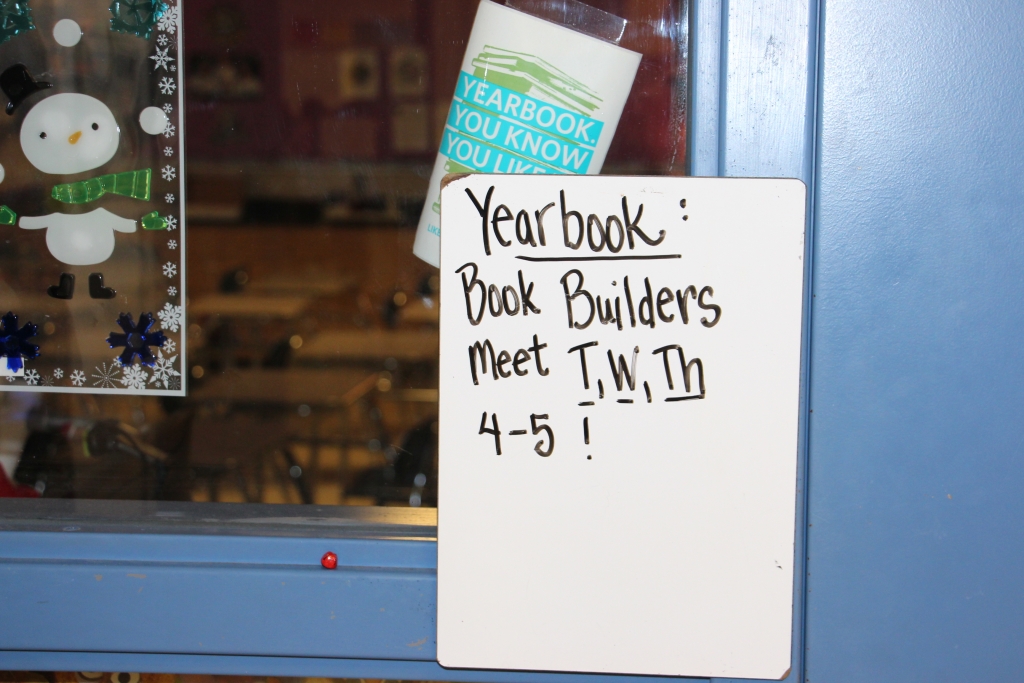 YEARBOOK.
YOU KNOW
YOU LIKE
Yearbook:
Book Builders
Meet T, W, Th
4-5 !